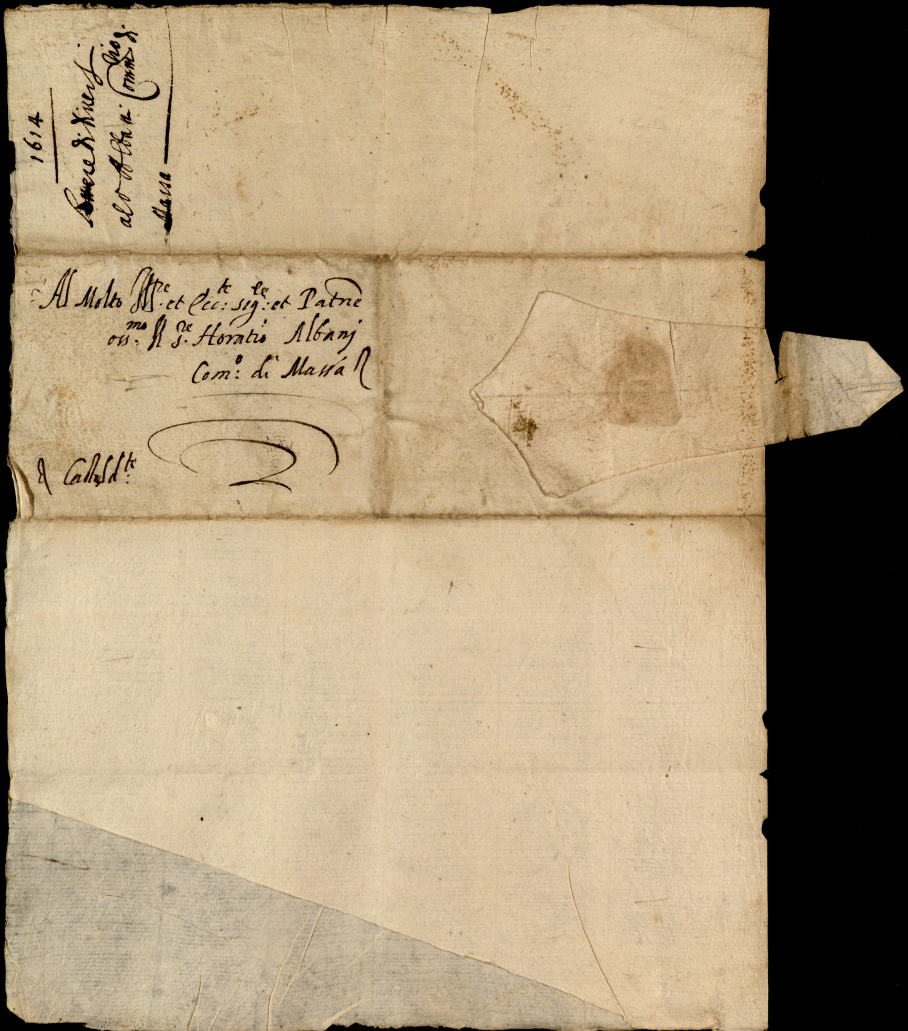 1614
di diversi
al Albani
Comm. di
Massa
Al Molto Ill.re et Ecc.te Sig.re et Patrne
oss.mo Il S.re Horatio Albanj
Com.o di Massa